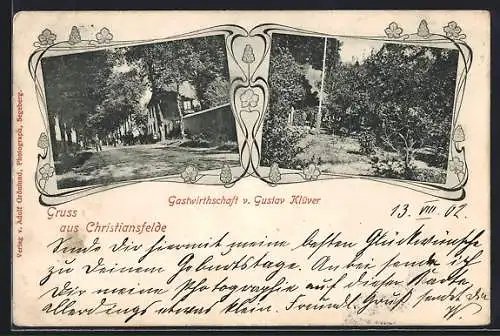 Verlag v. Adolf Grönlund, Photograph, Segeberg.
Gastwirthschaft v. Gustav Klüver
Gruss
aus Christiansfelde
13. VIII. 02.
Sende Dir hiermit meine besten Glückwünsche
zu Deinem Geburtstage. Anbei sende ich
Dir meine Photographie auf dieser Karte
allerdings etwas klein. Freundl. Gruß sendet Dir